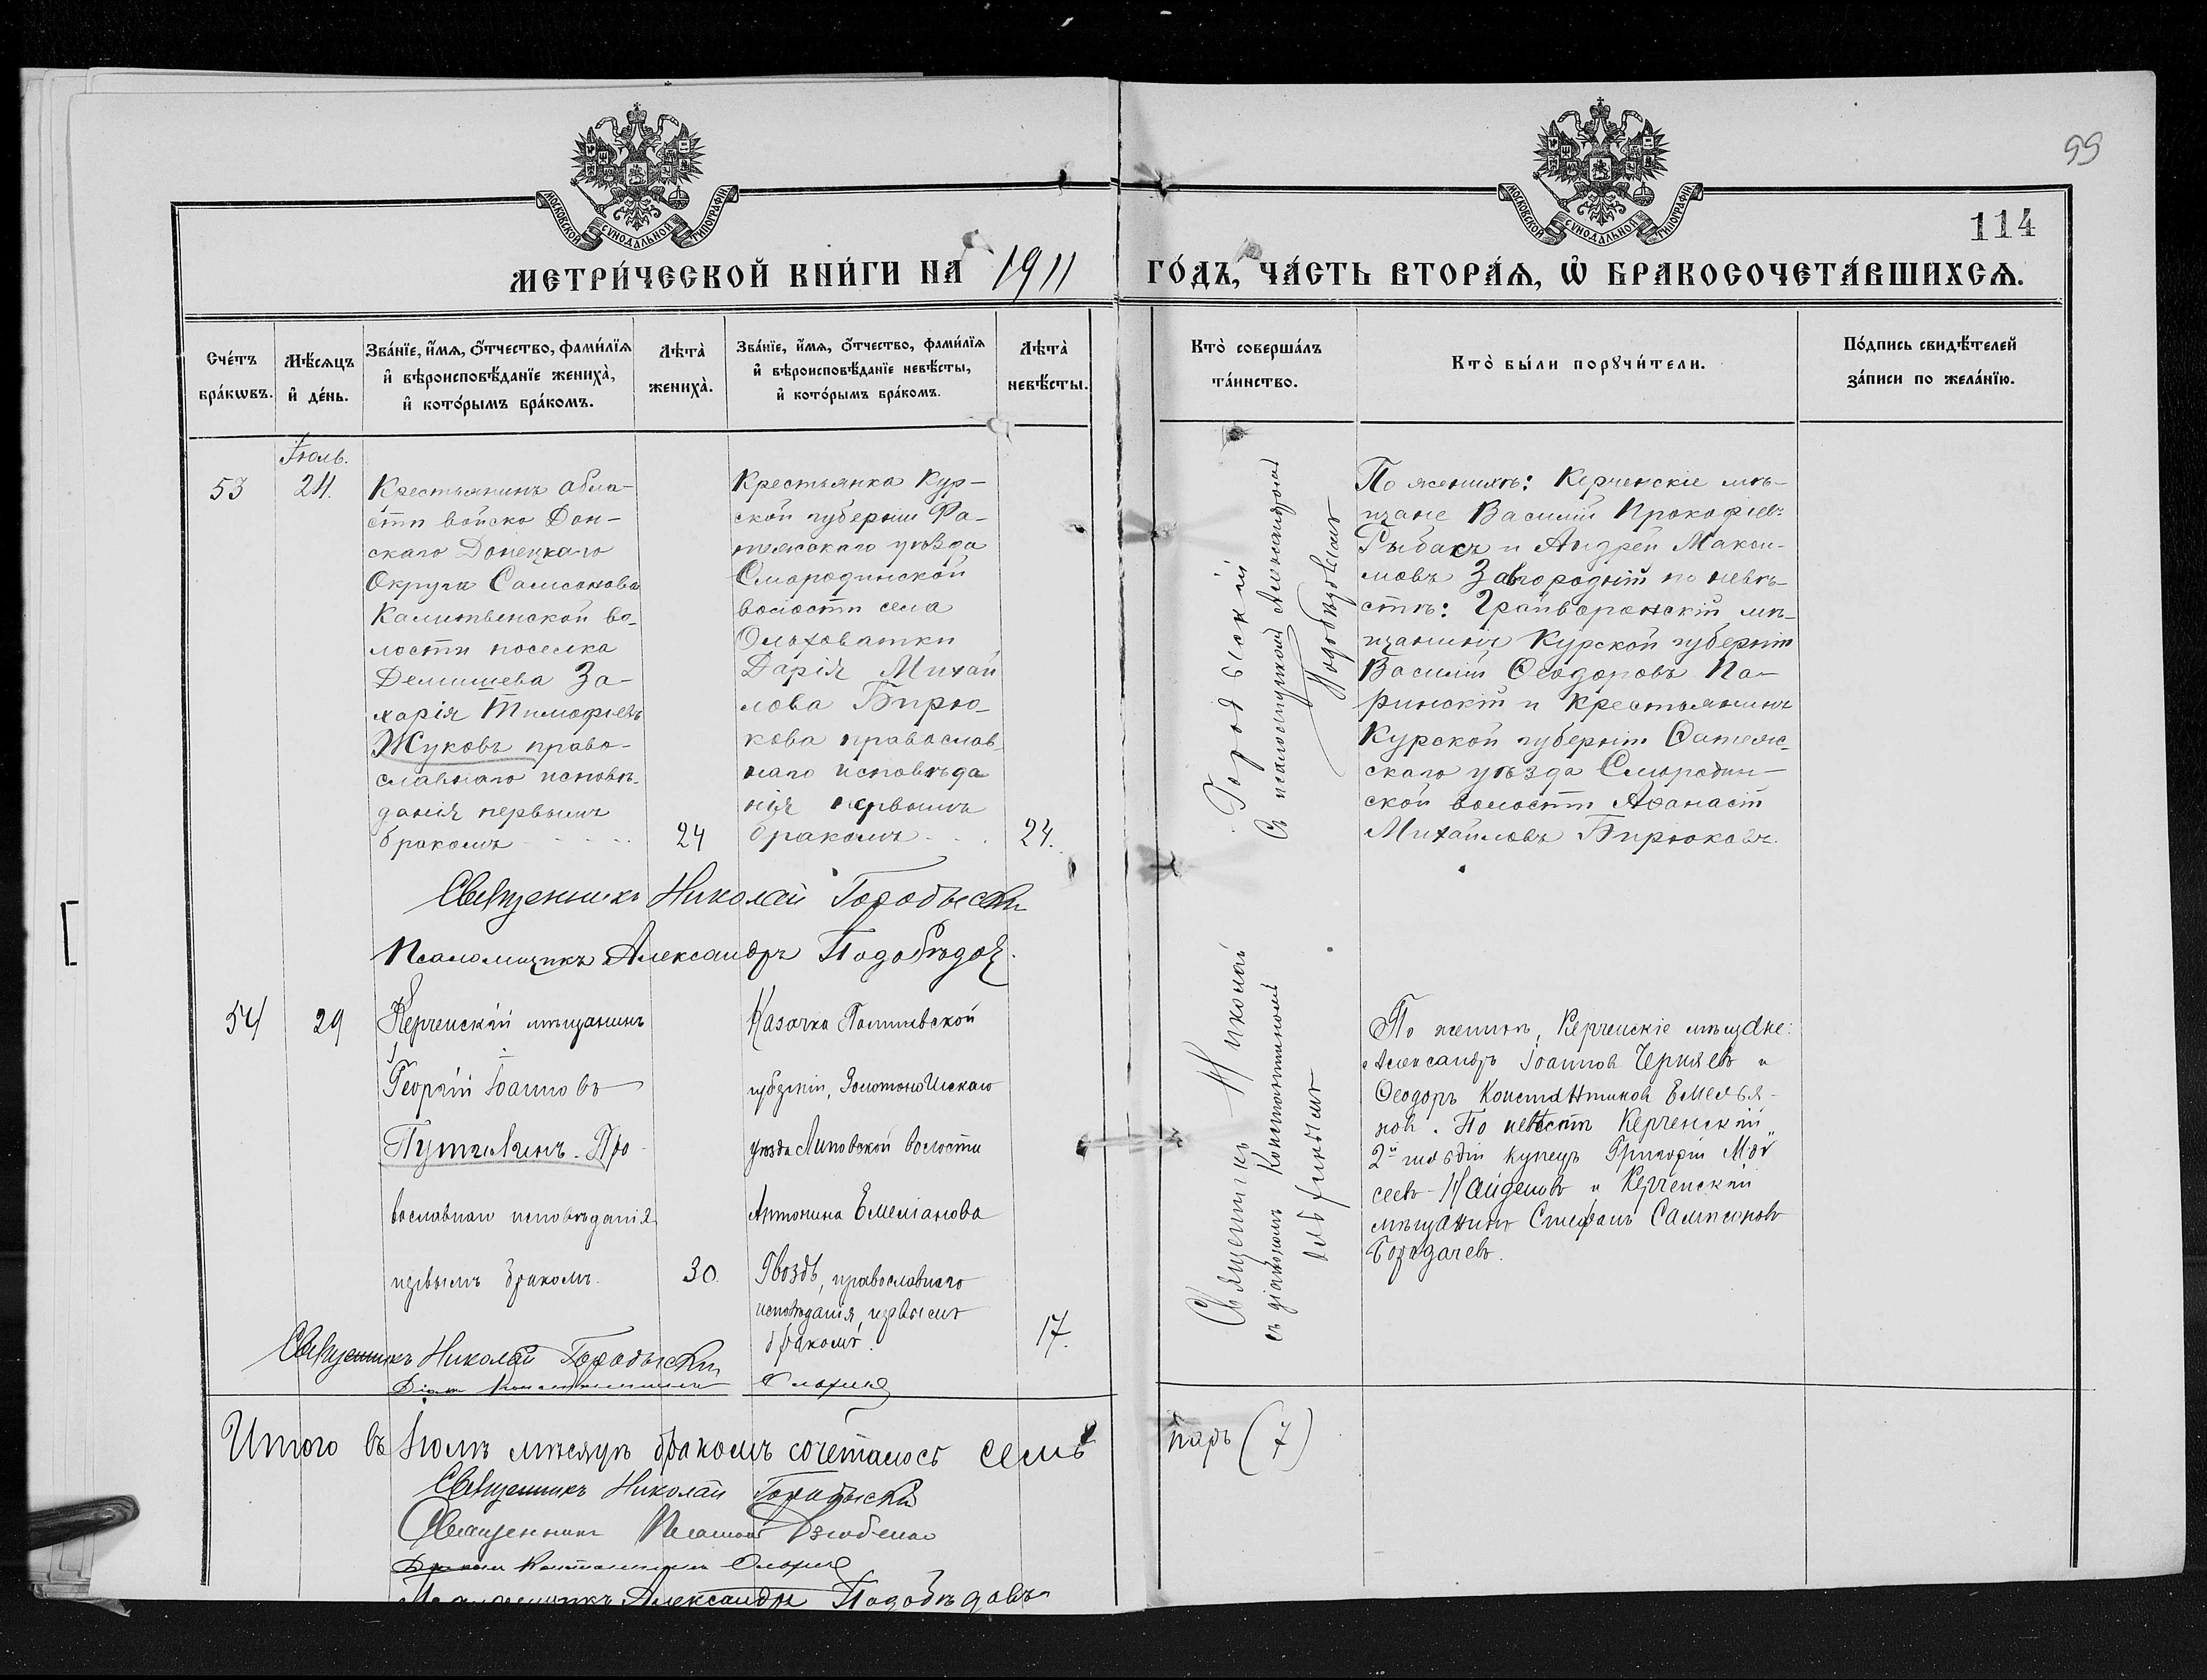 99
114
МОСКОВСКОЙ СУНОДАЛЬНОЙ ТИПОГРАФІИ
МОСКОВСКОЙ СУНОДАЛЬНОЙ ТИПОГРАФІИ
МЕТРИ́ЧЕСКОЙ КНИ́ГИ НА 1911 ГО́ДЪ, ЧА́СТЬ ВТОРА́Я, Ѡ БРАКОСОЧЕТА́ВШИХСЯ.
Сче́тъ бра́кѡвъ.
Мѣ́сяцъ и҆ де́нь.
Зва́нїе, и҆́мя, ѻ҆́тчество, фами́лїя и҆ вѣроисповѣ́данїе жениха̀, и҆ кото́рымъ бра́комъ.
Лѣта̀ жениха̀.
Зва́нїе, и҆́мя, ѻ҆́тчество, фами́лїя и҆ вѣроисповѣ́данїе невѣ́сты, и҆ кото́рымъ бра́комъ.
Лѣта̀ невѣ́сты.
Кто̀ соверша́лъ та́инство.
Кто̀ бы́ли порꙋчи́тели.
По́дпись свидѣ́телей за́писи по жела́нїю.
53
Іюль.
24.
Крестьянинъ обла-
сти войска Дон-
скаго Донецкаго
Округа Самсонова
Калитвенской во-
лости поселка
Демишева За-
харія Тимофіевъ
Жуковъ право-
славнаго исповѣ-
данія первымъ
бракомъ
24
Крестьянка Кур-
ской губерніи Фа-
тежскаго уѣзда
Смородинской
волости села
Ольховатки
Дарія Михаи
лова Бирю-
кова православ-
наго исповѣда
нія первымъ
бракомъ
24.
Городыскій
съ псаломщикомъ Александромъ
Подобѣдовымъ
По женихѣ: Керченскіе мѣ-
щане Василій Прокофіевъ
Рыбакъ и Андрей Макси-
мовъ Завгородній по невѣ-
стѣ: Грайворонскій мѣ-
щанинъ Курской губерніи
Василій Ѳеодоровъ Па-
ринскій и крестьянинъ
Курской губерніи Ѳатеж-
скаго уѣзда Смородин-
ской волости Аѳанасій
Михайловъ Бирюковъ.
Священникъ Николай Городыскій
Псаломщикъ Александръ Подобѣдовъ.
54
29
Керченскій мѣщанинъ
Георгій Іоанновъ
Путилинъ. Пра
вославнаго исповѣданія
первымъ бракомъ.
30.
Казачка Полтавской
губерніи, Золотоношскаго
уѣзда Липовской волости
Антонина Емеліанова
Гвоздь, православнаго
исповѣданія, первымъ
бракомъ.
17.
Священникъ Николай
съ діакономъ Константиномъ
По женихѣ, Керченскіе мѣщане:
Александръ Іоаннов Черняевъ и
Ѳеодоръ Константинов Емелья-
нов. По невѣстѣ Керченскій
2й гильдіи купецъ Григорій Мои
сеевъ Найденовъ и Керченскій
мѣщанинъ Стефанъ Сампсоновъ
Бородачевъ.
Священникъ Николай Городыскій
Діаконъ Константинъ
Итого въ Іюлѣ мѣсяцѣ бракомъ сочеталось семь паръ (7)
Священникъ Николай Городыскій
Священникъ
Діаконъ Константинъ
Псаломщикъ Александръ Подобѣдовъ